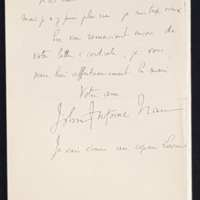 mais je n'y puis plus rien, je suis trop vieux!
En vous remerciant encore de
votre lettre si cordiale, je vous
serre bien affectueusement la main.
Votre ami
John Antoine Nau
Je vais comme au copain